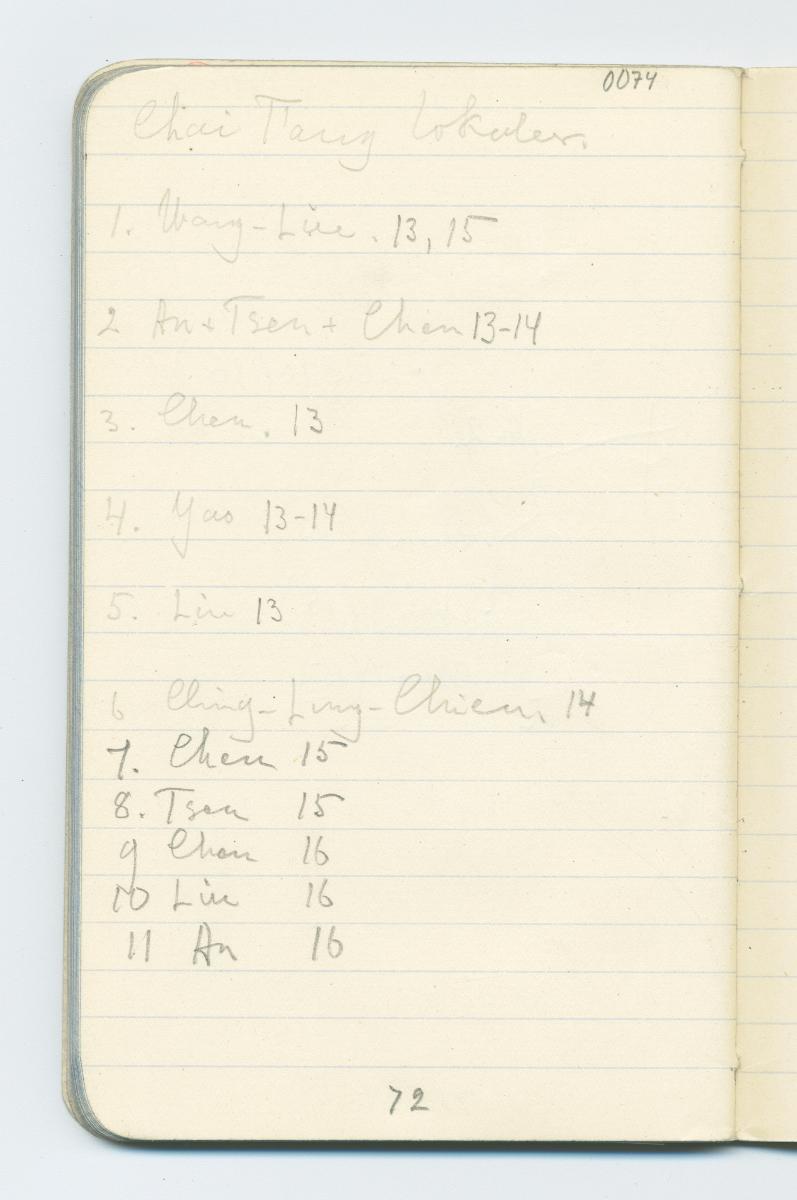 0074
Chai Tang lokaler.
1. Wang-Liu. 13, 15
2 An + Tsen + Chen 13-14
3. Chen. 13
4. Yao 13-14
5. Liu 13
6 Ching-Ling-Chien. 14
7. Chen 15
8. Tsen 15
9 Chen 16
10 Liu 16
11 An 16
72